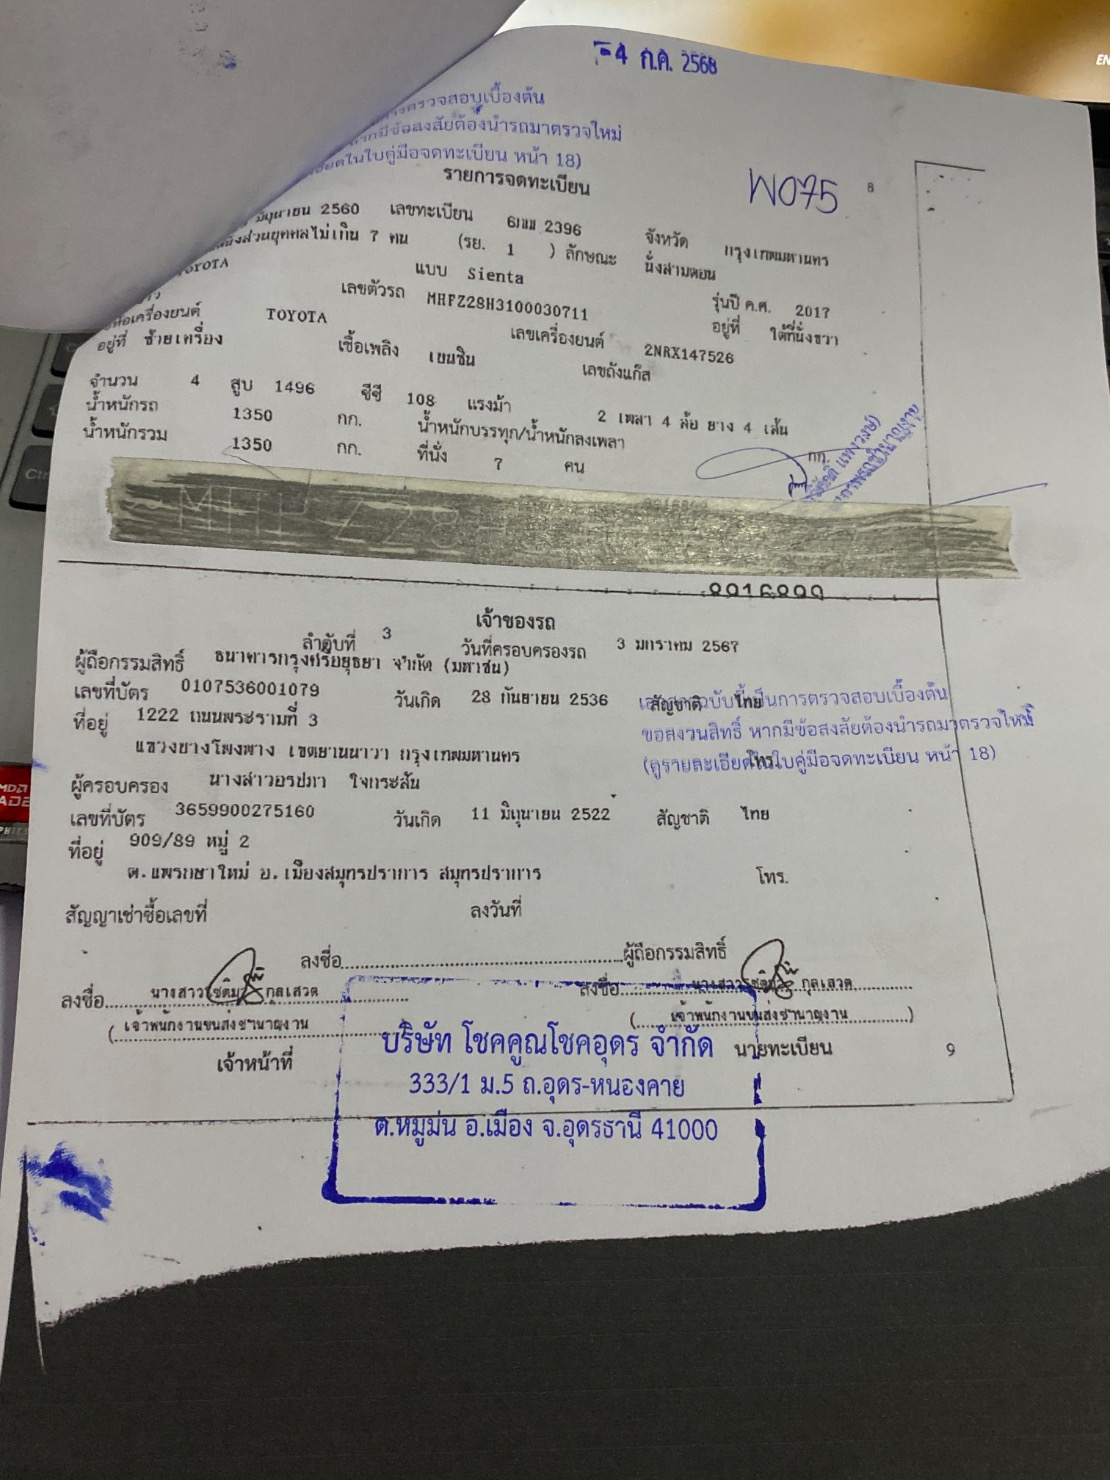 -4 ก.ค. 2568
ตรวจสอบเบื้องต้น
หากมีข้อสงสัยต้องนำรถมาตรวจใหม่
ในใบคู่มือจดทะเบียน หน้า 18)
รายการจดทะเบียน
W075
8
มิถุนายน 2560 เลขทะเบียน 6กก 2396 จังหวัด กรุงเทพมหานคร
นั่งส่วนบุคคลไม่เกิน 7 คน (รย. 1 ) ลักษณะ นั่งสามตอน
TOYOTA แบบ Sienta รุ่นปี ค.ศ. 2017
เลขตัวรถ MHFZ28H3100030711 อยู่ที่ ใต้ที่นั่งขวา
เครื่องยนต์ TOYOTA เลขเครื่องยนต์ 2NRX147526
อยู่ที่ ซ้ายเครื่อง เชื้อเพลิง เบนซิน เลขถังแก๊ส
จำนวน 4 สูบ 1496 ซีซี 108 แรงม้า 2 เพลา 4 ล้อ ยาง 4 เส้น
น้ำหนักรถ 1350 กก. น้ำหนักบรรทุก/น้ำหนักลงเพลา กก.
น้ำหนักรวม 1350 กก. ที่นั่ง 7 คน
MHFZ28H
เจ้าของรถ
ลำดับที่ 3 วันที่ครอบครองรถ 3 มกราคม 2567
ผู้ถือกรรมสิทธิ์ ธนาคารกรุงศรีอยุธยา จำกัด (มหาชน)
เลขที่บัตร 0107536001079 วันเกิด 28 กันยายน 2536 สัญชาติ ไทย
ที่อยู่ 1222 ถนนพระรามที่ 3
แขวงบางโพงพาง เขตยานนาวา กรุงเทพมหานคร โทร.
เอกสารฉบับนี้เป็นการตรวจสอบเบื้องต้น
ขอสงวนสิทธิ์ หากมีข้อสงสัยต้องนำรถมาตรวจใหม่
(ดูรายละเอียดในใบคู่มือจดทะเบียน หน้า 18)
ผู้ครอบครอง นางสาวอรปภา ใจกระสัน
เลขที่บัตร 3659900275160 วันเกิด 11 มิถุนายน 2522 สัญชาติ ไทย
ที่อยู่ 909/89 หมู่ 2
ต.แพรกษาใหม่ อ.เมืองสมุทรปราการ สมุทรปราการ โทร.
สัญญาเช่าซื้อเลขที่ ลงวันที่
ลงชื่อ ผู้ถือกรรมสิทธิ์
ลงชื่อ นางสาว กุลเสวต ลงชื่อ นางสาว กุลเสวต
( เจ้าพนักงานขนส่งชำนาญงาน ( เจ้าพนักงานขนส่งชำนาญงาน )
เจ้าหน้าที่ นายทะเบียน 9
บริษัท โชคคูณโชคอุดร จำกัด
333/1 ม.5 ถ.อุดร-หนองคาย
ต.หมูม่น อ.เมือง จ.อุดรธานี 41000